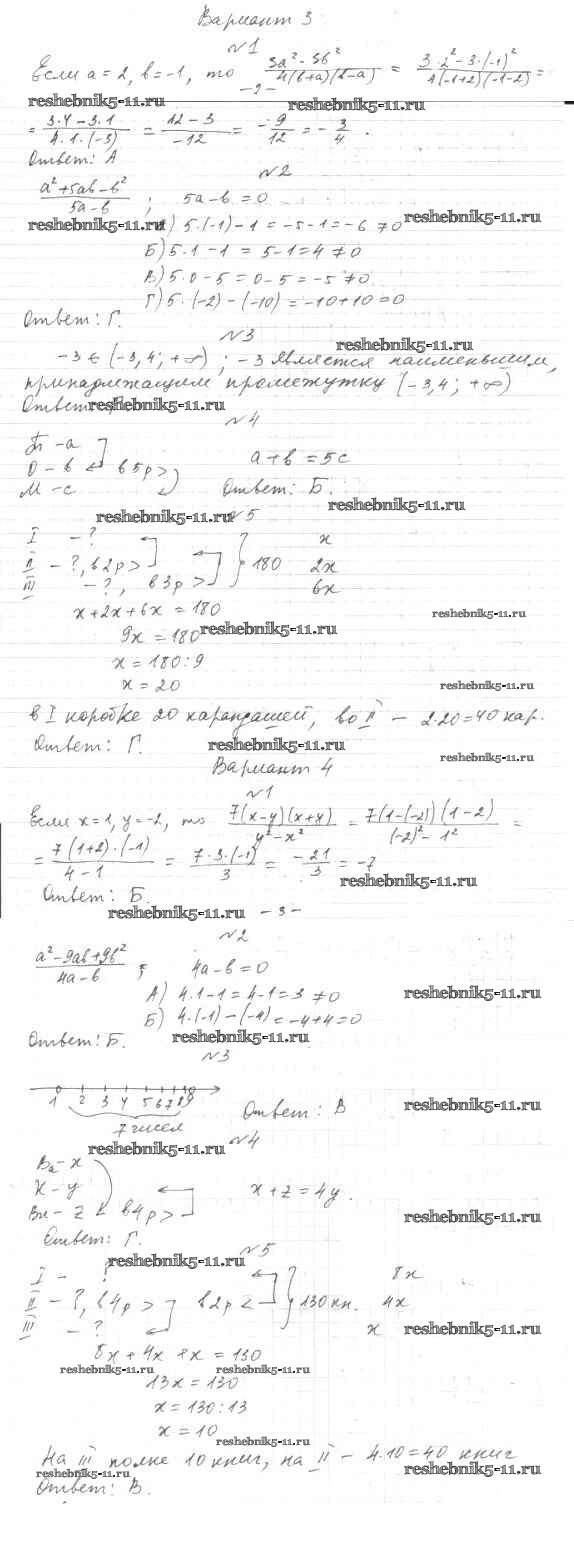 Вариант 3
№1
Если a = 2, b = -1, то (3a² - 3b²)/(4(b+a)(b-a)) = (3·2² - 3·(-1)²)/(4(-1+2)(-1-2)) =
-2-
reshebnik5-11.ru reshebnik5-11.ru
= (3·4 - 3·1)/(4·1·(-3)) = (12 - 3)/(-12) = -9/12 = -3/4.
Ответ: А
№2
(a² + 5ab - b²)/(5a - b); 5a - b = 0
reshebnik5-11.ru ) 5·(-1) - 1 = -5 - 1 = -6 ≠ 0 reshebnik5-11.ru
Б) 5·1 - 1 = 5 - 1 = 4 ≠ 0
В) 5·0 - 5 = 0 - 5 = -5 ≠ 0
Г) 5·(-2) - (-10) = -10 + 10 = 0
Ответ: Г.
№3
reshebnik5-11.ru
-3 ∈ (-3,4; +∞); -3 является наименьшим,
принадлежащим промежутку (-3,4; +∞)
Ответ reshebnik5-11.ru
№4
П - a
О - b в 5р > a + b = 5c
М - c Ответ: Б.
reshebnik5-11.ru №5 reshebnik5-11.ru
I - ? x
II - ?, в 2р > 180 2x
III - ?, в 3р > 6x
x + 2x + 6x = 180 reshebnik5-11.ru
9x = 180 reshebnik5-11.ru
x = 180 : 9
x = 20 reshebnik5-11.ru
в I коробке 20 карандашей, во II - 2·20 = 40 кар.
Ответ: Г. reshebnik5-11.ru
reshebnik5-11.ru
Вариант 4
№1
Если x = 1, y = -2, то (7(x-y)(x+y))/(y² - x²) = (7(1-(-2))(1-2))/((-2)² - 1²) =
= (7(1+2)·(-1))/(4-1) = (7·3·(-1))/3 = -21/3 = -7
reshebnik5-11.ru
Ответ: Б.
reshebnik5-11.ru -3-
№2
(a² - 9ab + 9b²)/(4a - b); 4a - b = 0
А) 4·1 - 1 = 4 - 1 = 3 ≠ 0 reshebnik5-11.ru
Б) 4·(-1) - (-4) = -4 + 4 = 0
Ответ: Б. reshebnik5-11.ru
№3
1 2 3 4 5 6 7 8 9 Ответ: В reshebnik5-11.ru
7 чисел
reshebnik5-11.ru №4
Ва - x
К - y x + z = 4y.
Вл - z в 4р > reshebnik5-11.ru
Ответ: Г.
reshebnik5-11.ru №5
I - ? 8x
II - ?, в 4р > в 2р < 130 кн. 4x
III - ? x reshebnik5-11.ru
8x + 4x + x = 130
reshebnik5-11.ru reshebnik5-11.ru
13x = 130
x = 130 : 13
x = 10
reshebnik5-11.ru
На III полке 10 книг, на II - 4·10 = 40 книг
reshebnik5-11.ru reshebnik5-11.ru
Ответ: В.